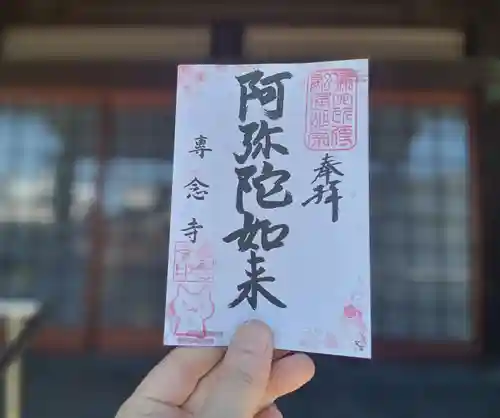 奉拝
阿弥陀如来
專念寺